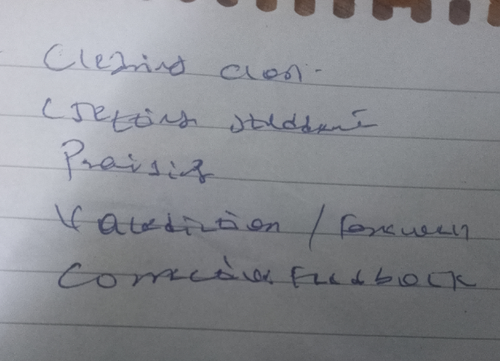 Clezing clas.
Getting studdent
Praising
Valediction / Farewell
Corrective Feedback